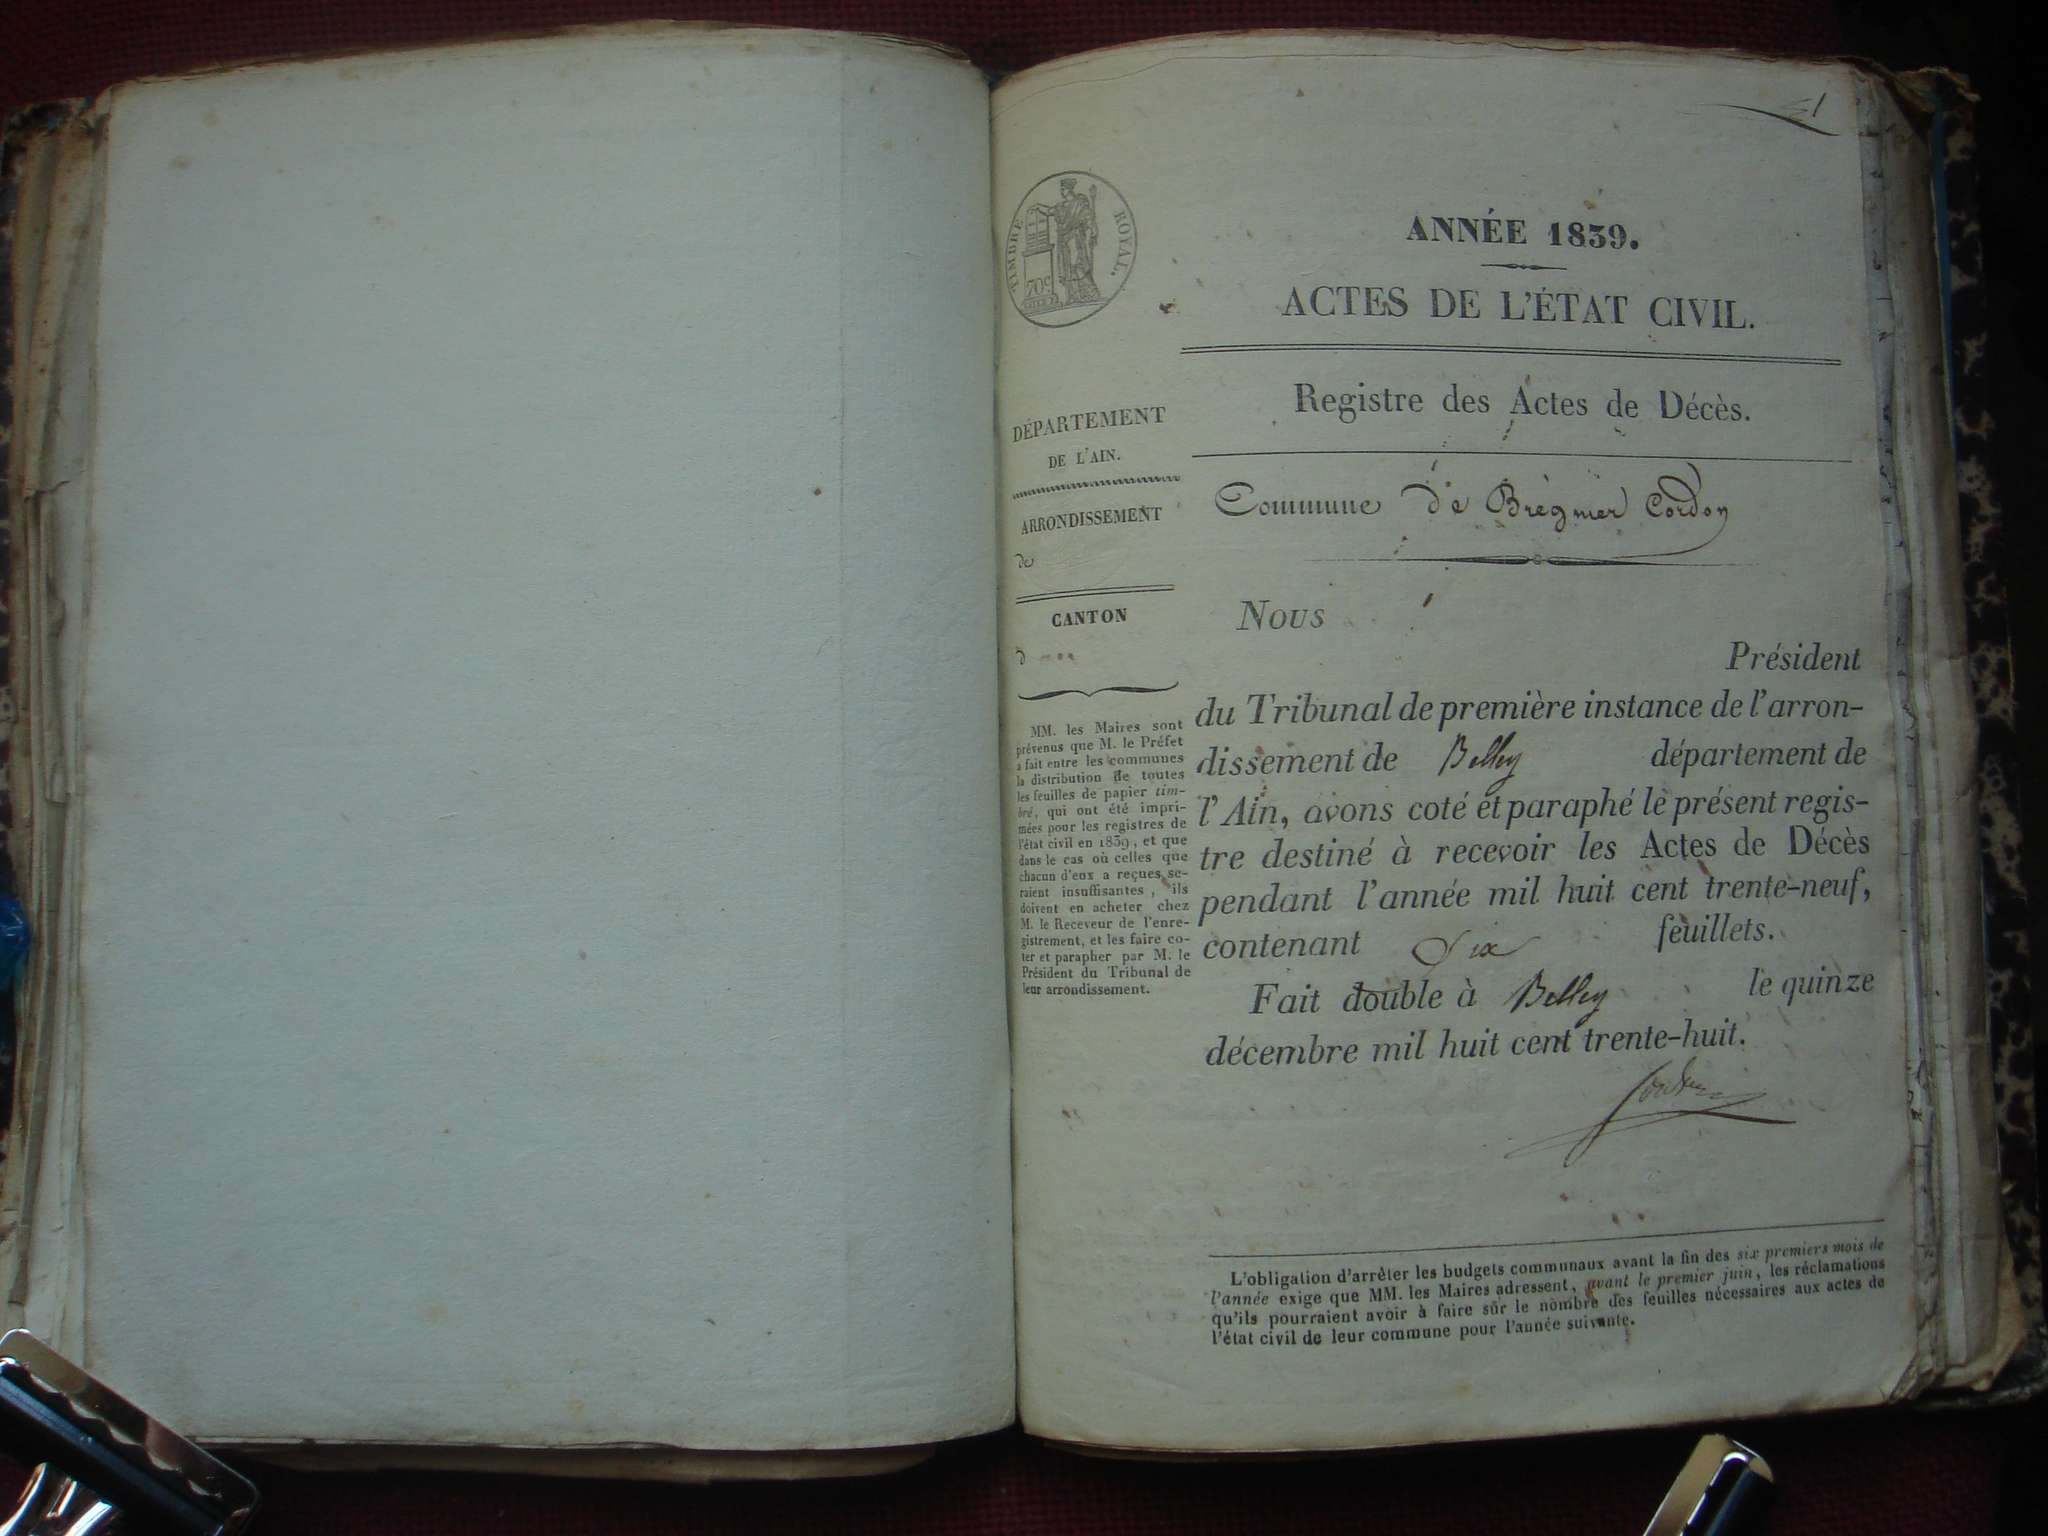 1
TIMBRE ROYAL.
70 c
ANNÉE 1839.
ACTES DE L'ÉTAT CIVIL.
Registre des Actes de Décès.
Commune de Brégnier Cordon
DÉPARTEMENT
DE L'AIN.
ARRONDISSEMENT
de
CANTON
d
MM. les Maires sont
prévenus que M. le Préfet
a fait entre les communes
la distribution de toutes
les feuilles de papier tim-
bré, qui ont été impri-
mées pour les registres de
l'état civil en 1839, et que
dans le cas où celles que
chacun d'eux a reçues se-
raient insuffisantes, ils
doivent en acheter chez
M. le Receveur de l'enre-
gistrement, et les faire co-
ter et parapher par M. le
Président du Tribunal de
leur arrondissement.
Nous
Président
du Tribunal de première instance de l'arron-
dissement de Belley département de
l'Ain, avons coté et paraphé le présent regis-
tre destiné à recevoir les Actes de Décès
pendant l'année mil huit cent trente-neuf,
contenant Six feuillets.
Fait double à Belley le quinze
décembre mil huit cent trente-huit.
L'obligation d'arrêter les budgets communaux avant la fin des six premiers mois de
l'année exige que MM. les Maires adressent, avant le premier juin, les réclamations
qu'ils pourraient avoir à faire sur le nombre des feuilles nécessaires aux actes de
l'état civil de leur commune pour l'année suivante.